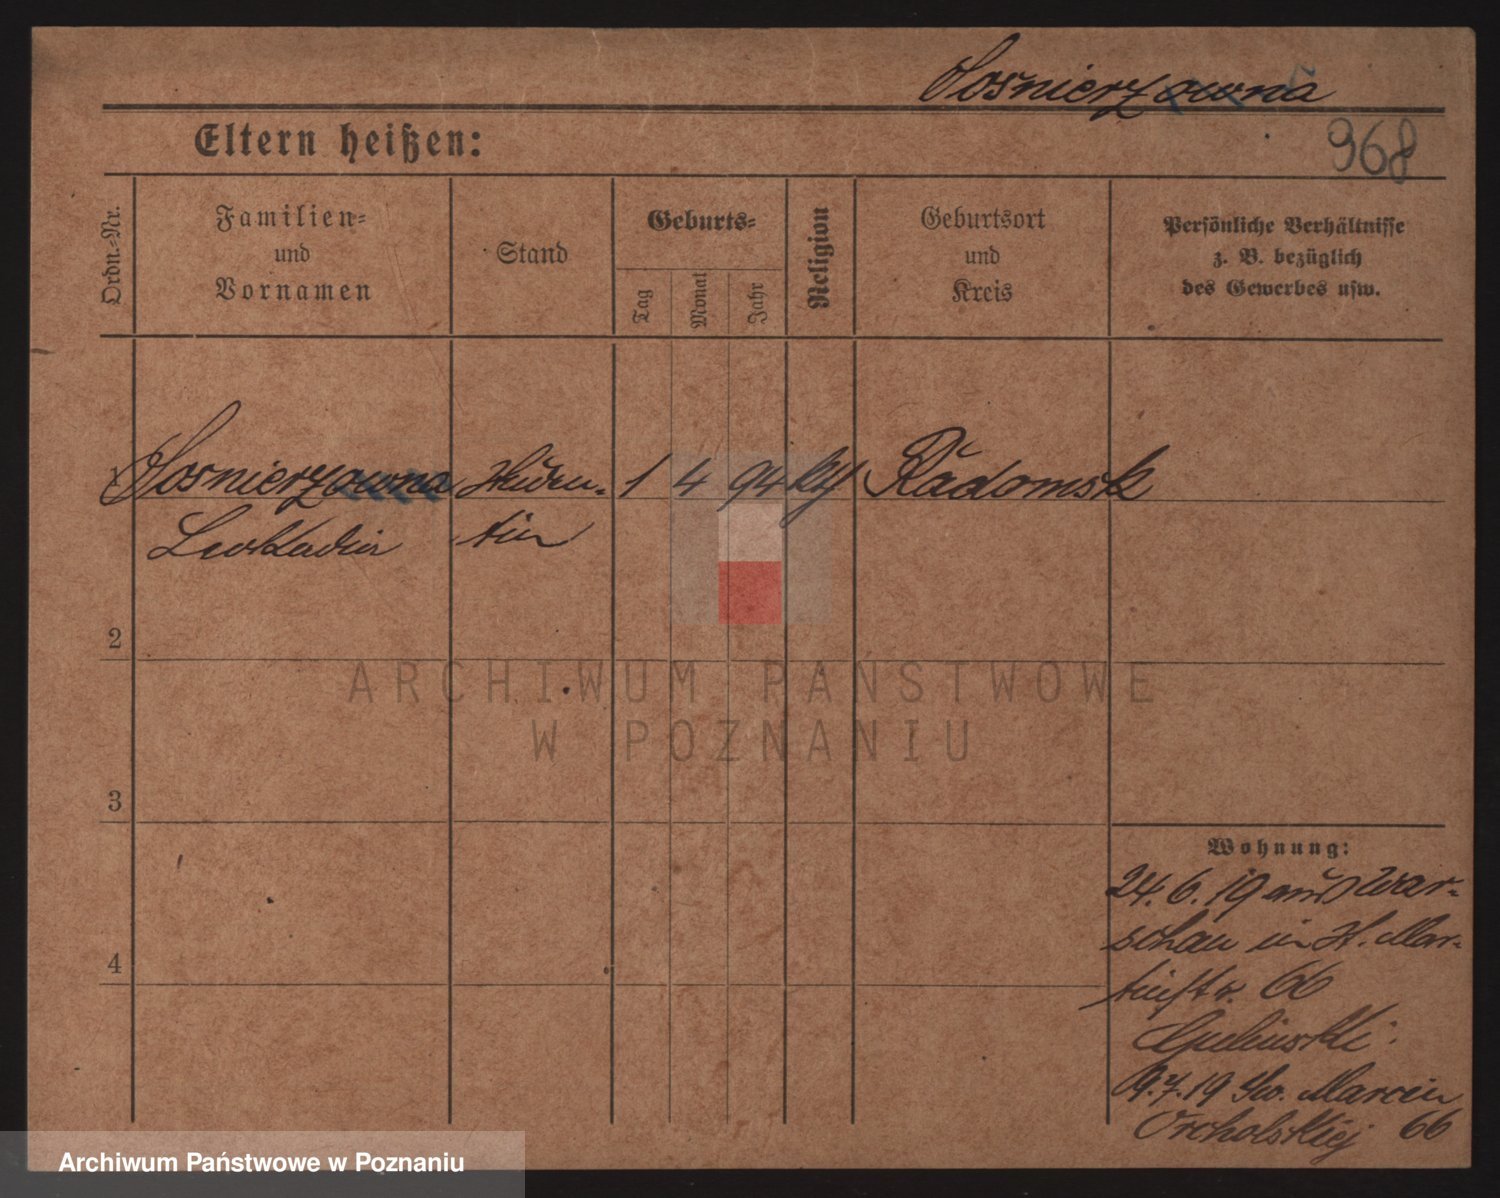 Sośnierzowna
968
Eltern heißen:
Ordn.=Nr.
Familien=
und
Vornamen
Stand
Geburts=
Tag
Monat
Jahr
Religion
Geburtsort
und
Kreis
Persönliche Verhältnisse
z. B. bezüglich
des Gewerbes usw.
1 Sosnierzowna Studen= 1 4 94 kg Radomsk
Leokadia tin
2
3
4
Wohnung:
24. 6. 19 aus War=
schau in St. Mar=
tinstr. 66
9.7.19 Św. Marcin
66
ARCHIWUM PAŃSTWOWE
W POZNANIU
Archiwum Państwowe w Poznaniu